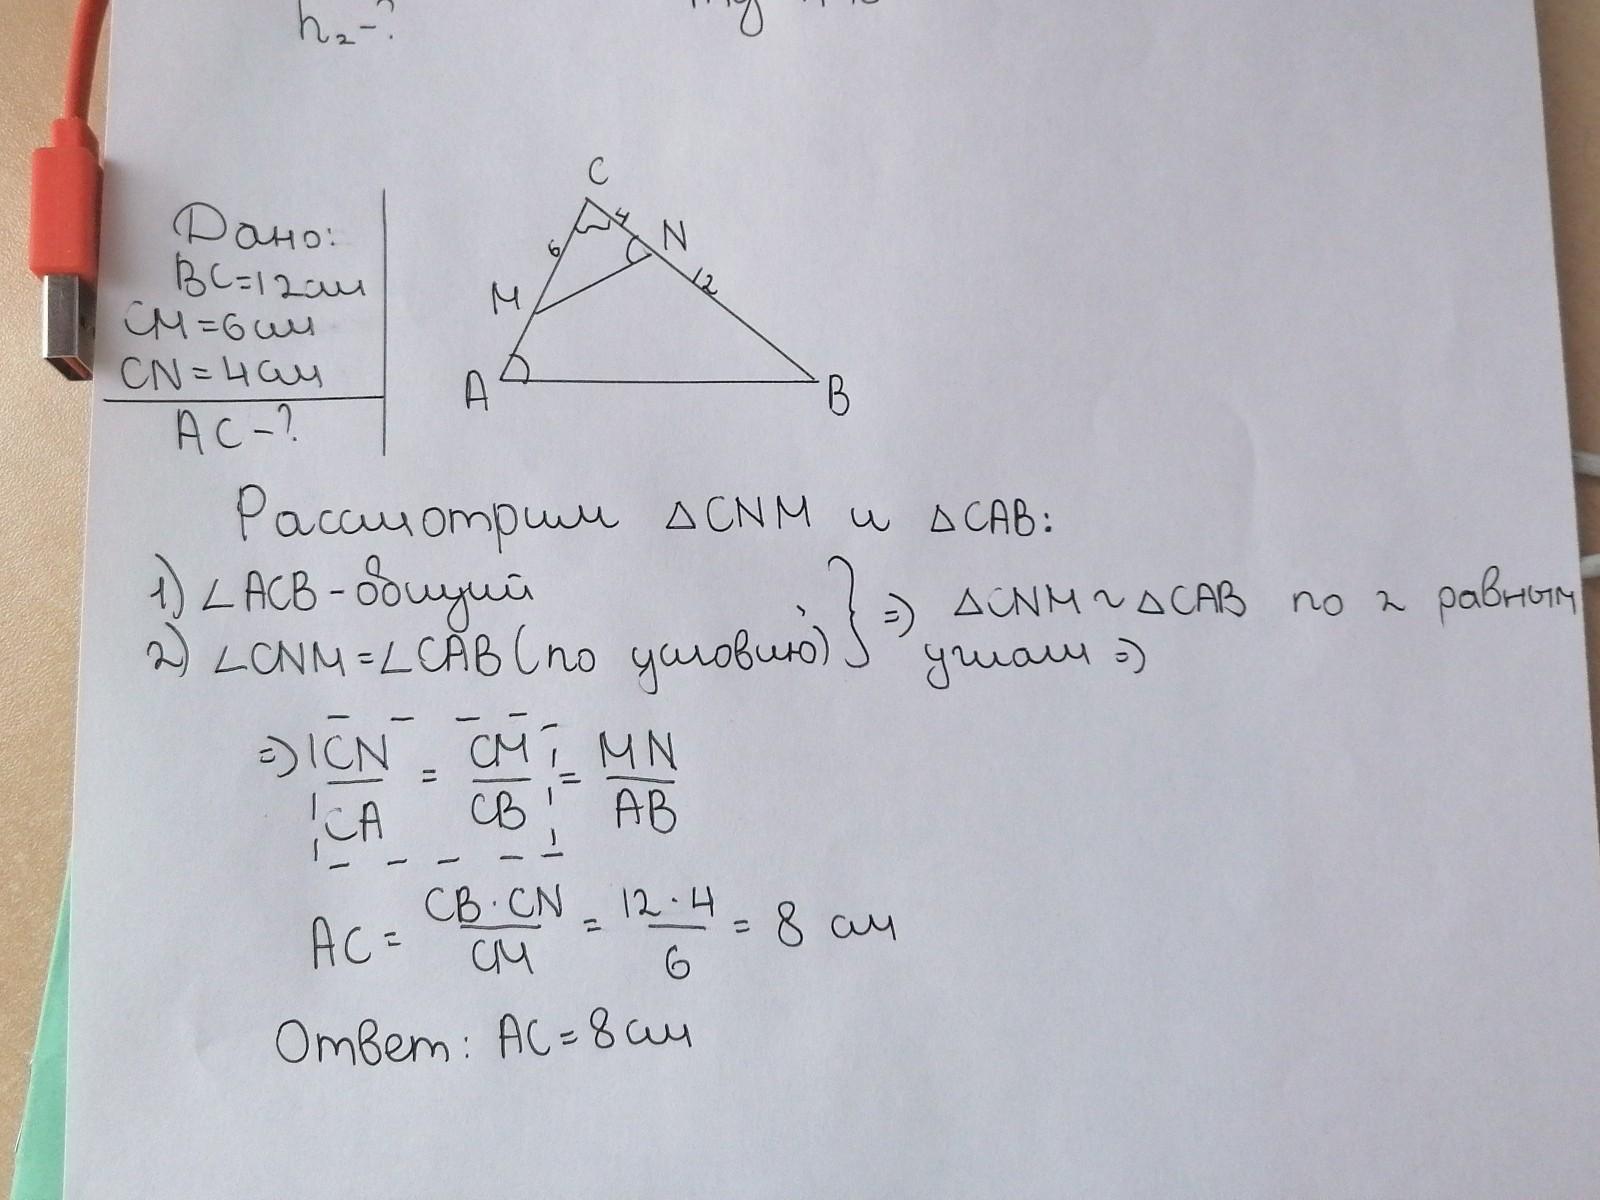 h₂-?
Дано:
BC=12см
CM=6см
CN=4см
AC-?
C
4
N
6
12
M
A
B
Рассмотрим △CNM и △CAB:
1) ∠ACB - общий
2) ∠CNM=∠CAB (по условию) } => △CNM ~ △CAB по 2 равным
углам =>
=> CN/CA = CM/CB = MN/AB
AC = CB·CN/CM = 12·4/6 = 8 см
Ответ: AC=8см